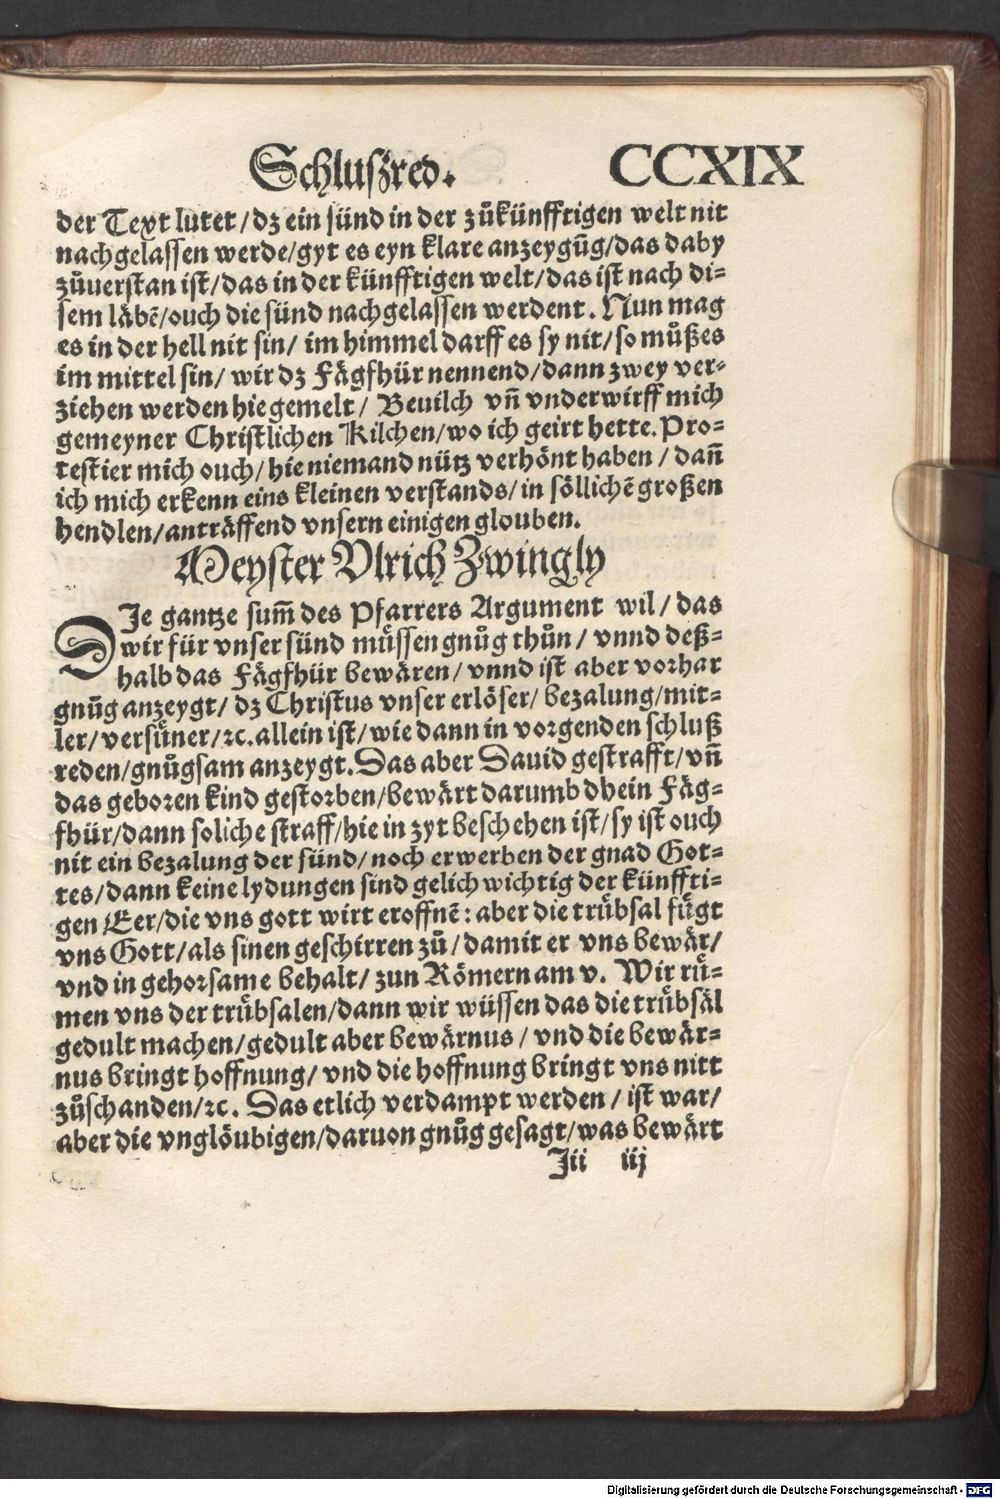 Schlußred.
CCXIX
der Text lutet / dz ein sünd in der zůkünfftigen welt nit
nachgelassen werde/gyt es eyn klare anzeygũg/das daby
zůuerstan ist/das in der künfftigen welt/das ist nach di=
sem läbẽ/ouch die sünd nachgelassen werdent. Nun mag
es in der hell nit sin/ im himmel darff es sy nit/so můßes
im mittel sin/ wir dz Fägfhür nennend/dann zwey ver=
ziehen werden hie gemelt/ Beuilch vñ vnderwirff mich
gemeyner Christlichen Kilchen/wo ich geirt hette. Pro=
testier mich ouch/hie niemand nütz verhönt haben / dañ
ich mich erkenn eins kleinen verstands/in söllichẽ großen
hendlen/anträffend vnsern einigen glouben.
Meyster Vlrich Zwingly
DJe gantze sum̃ des Pfarrers Argument wil/das
wir für vnser sünd müssen gnůg thůn / vnnd deß=
halb das Fägfhür bewären/vnnd ist aber vorhar
gnůg anzeygt/ dz Christus vnser erlöser/ bezalung/mit=
ler/versüner/⁊c.allein ist/wie dann in vorgenden schluß
reden/gnůgsam anzeygt.Das aber Dauid gestrafft/vñ
das geboren kind gestorben/bewärt darumb dhein Fäg=
fhür/dann soliche straff/hie in zyt beschehen ist/sy ist ouch
nit ein bezalung der sünd/noch erwerben der gnad Got=
tes/dann keine lydungen sind gelich wichtig der künffti=
gen Eer/die vns gott wirt eroffnẽ: aber die trůbsal fügt
vns Gott/als sinen geschirren zů/damit er vns bewär/
vnd in gehorsame behalt/ zun Römern am v. Wir rů=
men vns der trůbsalen/dann wir wüssen das die trůbsäl
gedult machen/gedult aber bewärnus / vnd die bewär=
nus bringt hoffnung/ vnd die hoffnung bringt vns nitt
zůschanden/⁊c. Das etlich verdampt werden / ist war/
aber die vnglöubigen/daruon gnůg gesagt/was bewärt
Jii iij
Digitalisierung gefördert durch die Deutsche Forschungsgemeinschaft - DFG